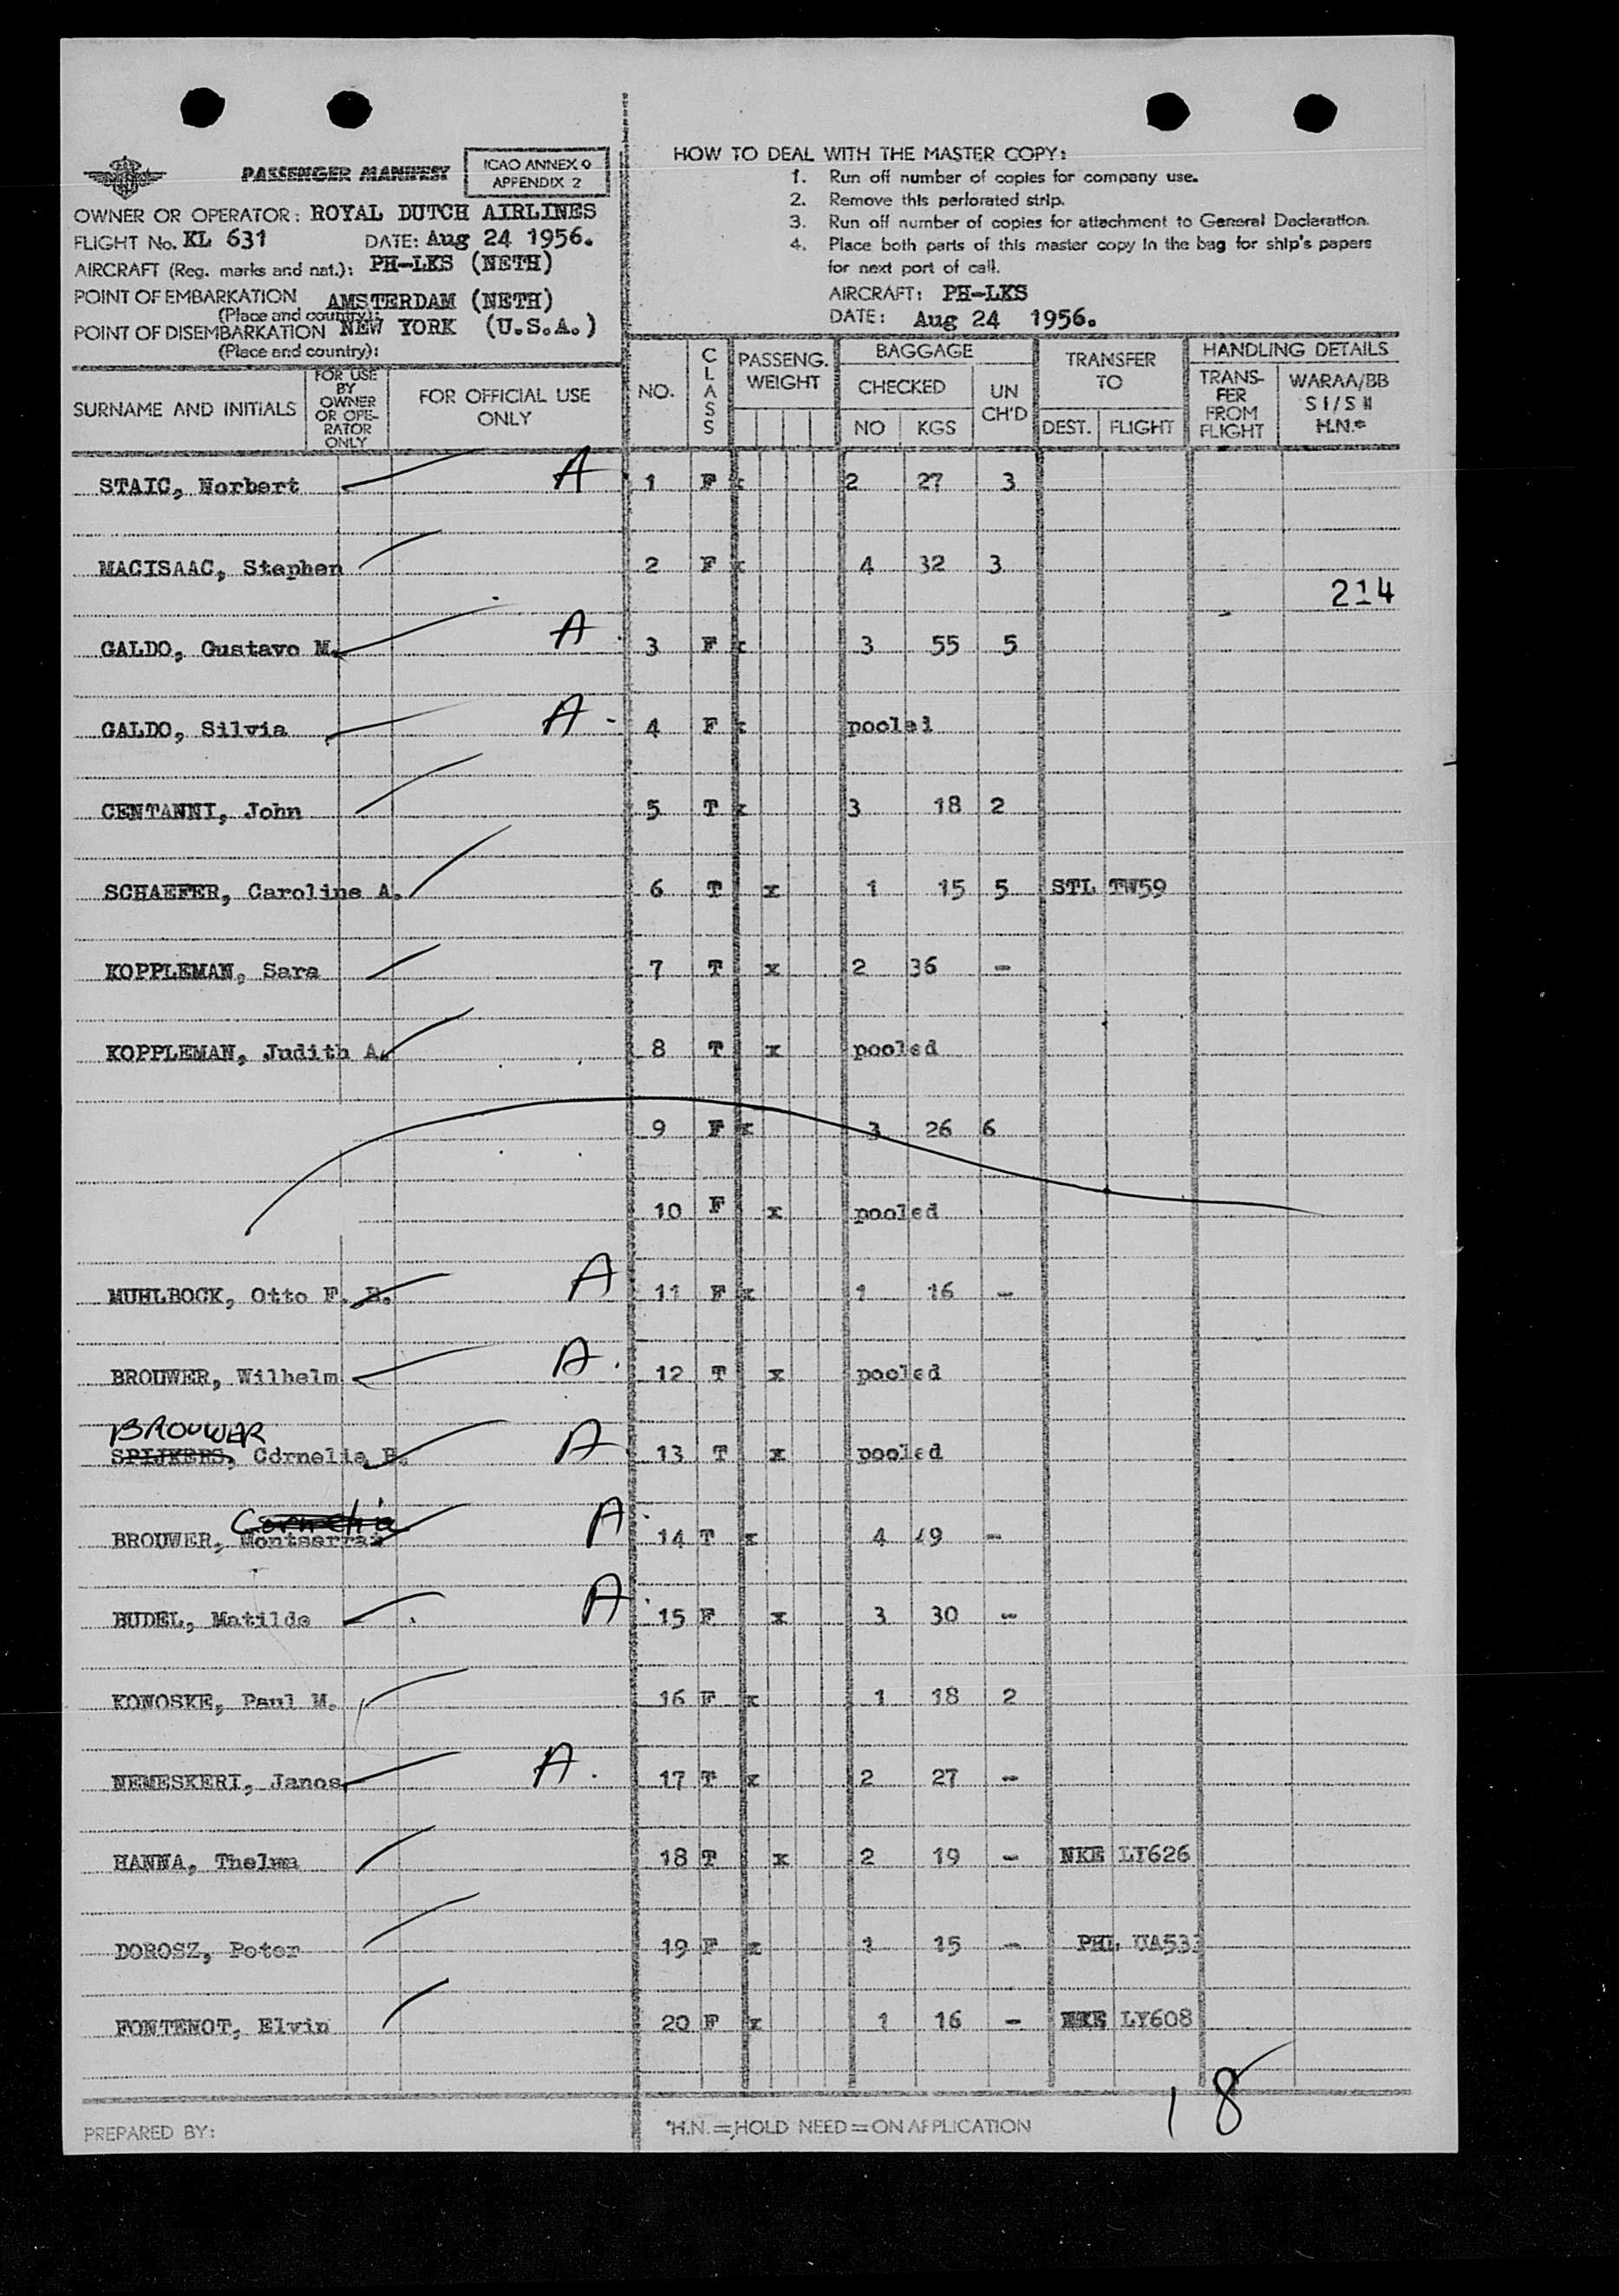 PASSENGER MANIFEST
ICAO ANNEX 9
APPENDIX 2
OWNER OR OPERATOR: ROYAL DUTCH AIRLINES
FLIGHT No. KL 631 DATE: Aug 24 1956.
AIRCRAFT (Reg. marks and nat.): PH-LKS (NETH)
POINT OF EMBARKATION AMSTERDAM (NETH)
(Place and country):
POINT OF DISEMBARKATION NEW YORK (U.S.A.)
(Place and country):
HOW TO DEAL WITH THE MASTER COPY:
1. Run off number of copies for company use.
2. Remove this perforated strip.
3. Run off number of copies for attachment to General Declaration.
4. Place both parts of this master copy in the bag for ship's papers
for next port of call.
AIRCRAFT: PH-LKS
DATE: Aug 24 1956.
SURNAME AND INITIALS
FOR USE
BY
OWNER
OR OPE-
RATOR
ONLY
FOR OFFICIAL USE
ONLY
NO.
CLASS
PASSENG.
WEIGHT
BAGGAGE
CHECKED
NO KGS
UN
CH'D
TRANSFER
TO
DEST. FLIGHT
HANDLING DETAILS
TRANS-
FER
FROM
FLIGHT
WARAA/BB
S I/S II
H.N.*
STAIC, Norbert A 1 F x 2 27 3
MACISAAC, Stephen 2 F x 4 32 3
214
GALDO, Gustavo M. A 3 F x 3 55 5
GALDO, Silvia A 4 F x pooled
CENTANNI, John 5 T x 3 18 2
SCHAEFER, Caroline A. 6 T x 1 15 5 STL TW59
KOPPLEMAN, Sara 7 T x 2 36 -
KOPPLEMAN, Judith A. 8 T x pooled
9 F x 3 26 6
10 F x pooled
MUHLBOCK, Otto F. H. A 11 F x 1 16 -
BROUWER, Wilhelm A 12 T x pooled
BROUWER
SPIJKERS, Cornelia P. A 13 T x pooled
Cornelia
BROUWER, Montserrat A 14 T x 4 49 -
BUDEL, Matilde A 15 F x 3 30 -
KONOSKE, Paul M. 16 F x 1 18 2
NEMESKERI, Janos A 17 T x 2 27 -
HANNA, Thelma 18 T x 2 19 - NKE LY626
DOROSZ, Peter 19 F x 1 15 - PHL UA533
FONTENOT, Elvin 20 F x 1 16 - NKE LY608
18
PREPARED BY:
*H.N.=HOLD NEED=ON APPLICATION